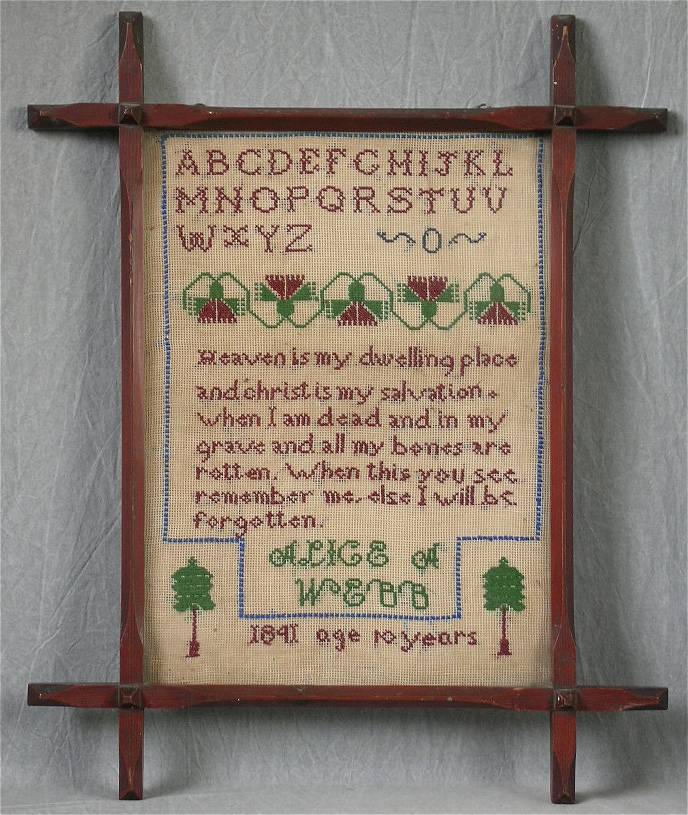 ABCDEFGHIJKL
MNOPQRSTUV
WXYZ
Heaven is my dwelling place
and christ is my salvation.
when I am dead and in my
grave and all my bones are
rotten. When this you see
remember me. else I will be
forgotten.
ALICE A
WEBB
1841 age 10 years